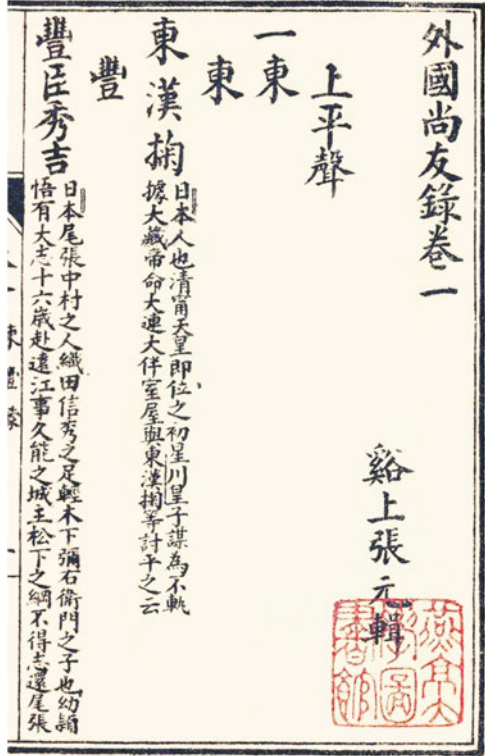 外國尚友錄卷一
谿上張元輯
燕京大學圖書館
上平聲
一東
東
東漢掬
日本人也清甯天皇即位之初星川皇子謀為不軌
據大藏帝命大連大伴室屋與東漢掬等討平之云
豐
豐臣秀吉
日本尾張中村之人織田信秀之足輕木下彌右衛門之子也幼穎
悟有大志十六歲赴遠江事久能之城主松下之綱不得志還尾張